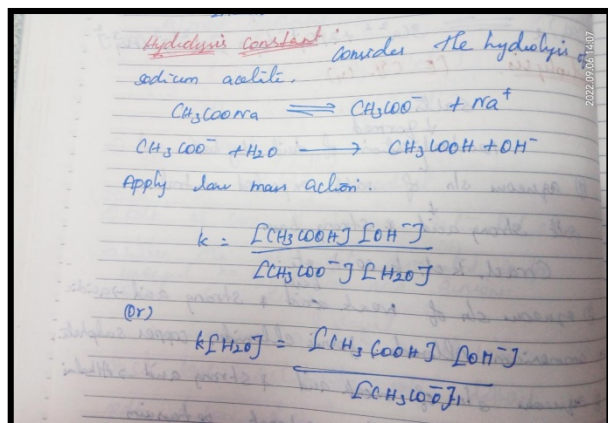 Hydrolysis constant : Consider the hydrolysis of
sodium acetate.
CH₃COONa ⇌ CH₃COO⁻ + Na⁺
CH₃COO⁻ + H₂O ⟶ CH₃COOH + OH⁻
Apply law mass action.
k = [CH₃COOH] [OH⁻]
[CH₃COO⁻] [H₂O]
(Or)
k[H₂O] = [CH₃COOH] [OH⁻]
[CH₃COO⁻]
2022.09.06 14:07